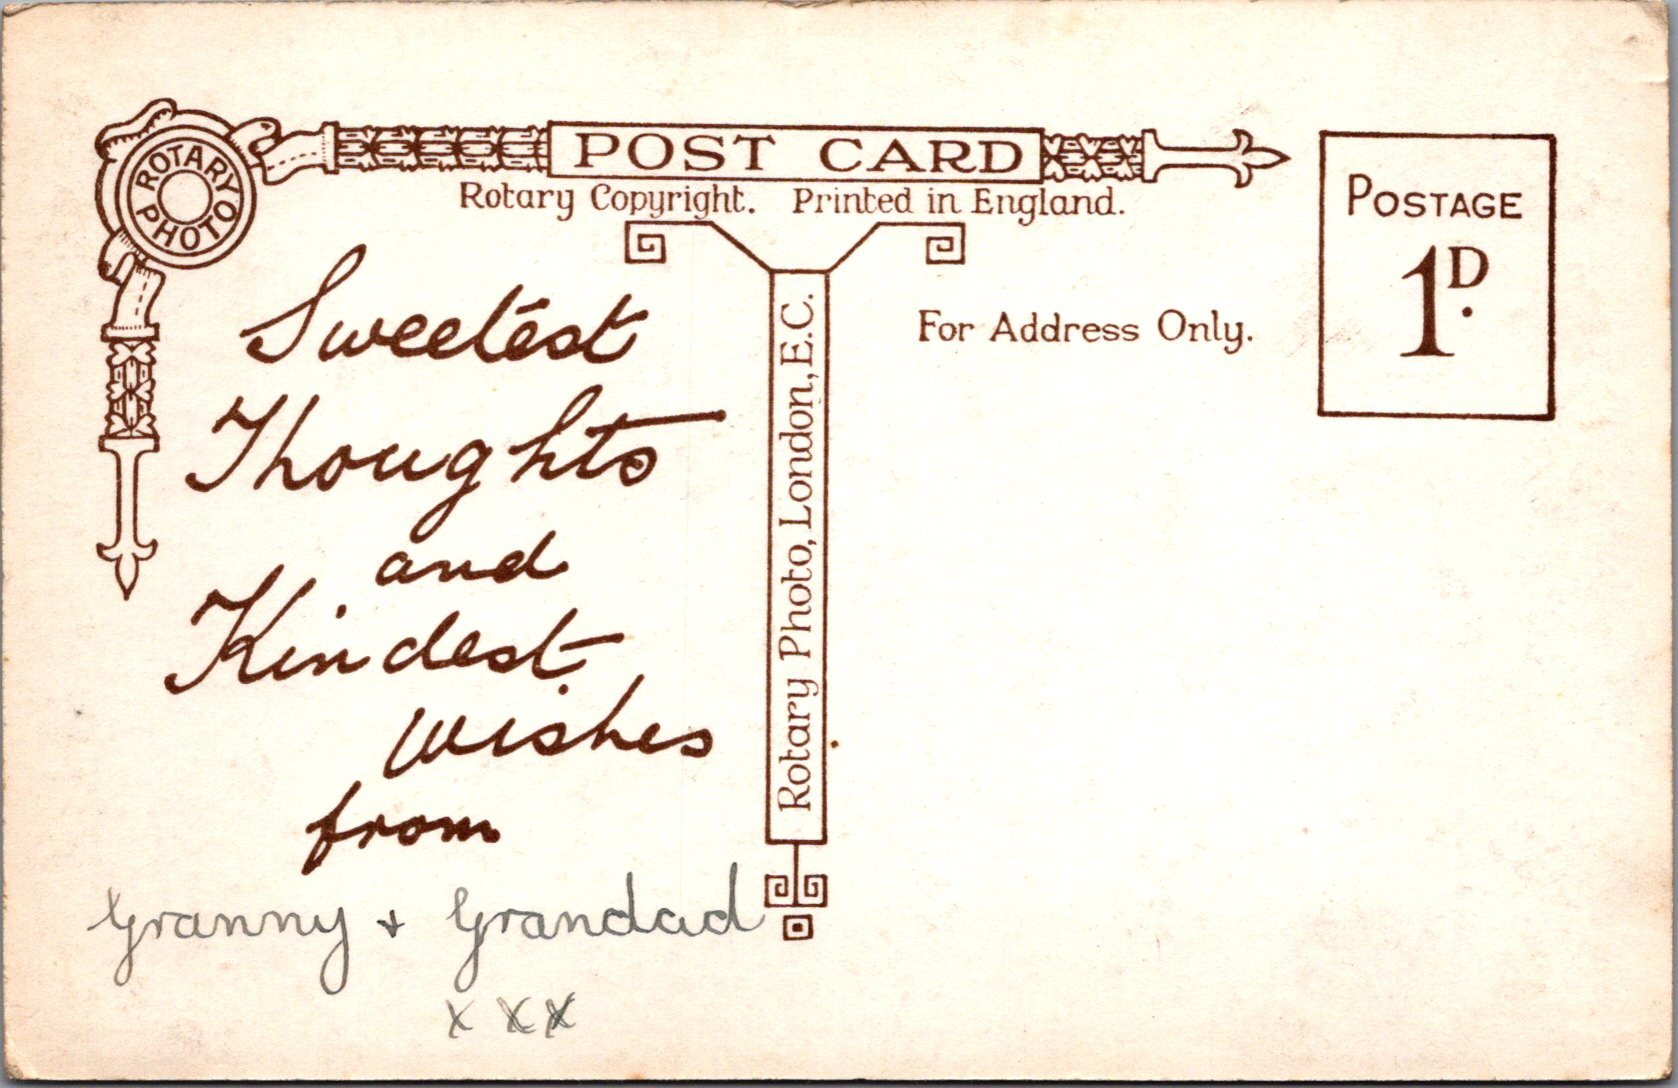 ROTARY PHOTO
POST CARD
Rotary Copyright. Printed in England.
POSTAGE
1D.
For Address Only.
Rotary Photo, London, E.C.
Sweetest
Thoughts
and
Kindest
Wishes
from
Granny + Grandad
x x x